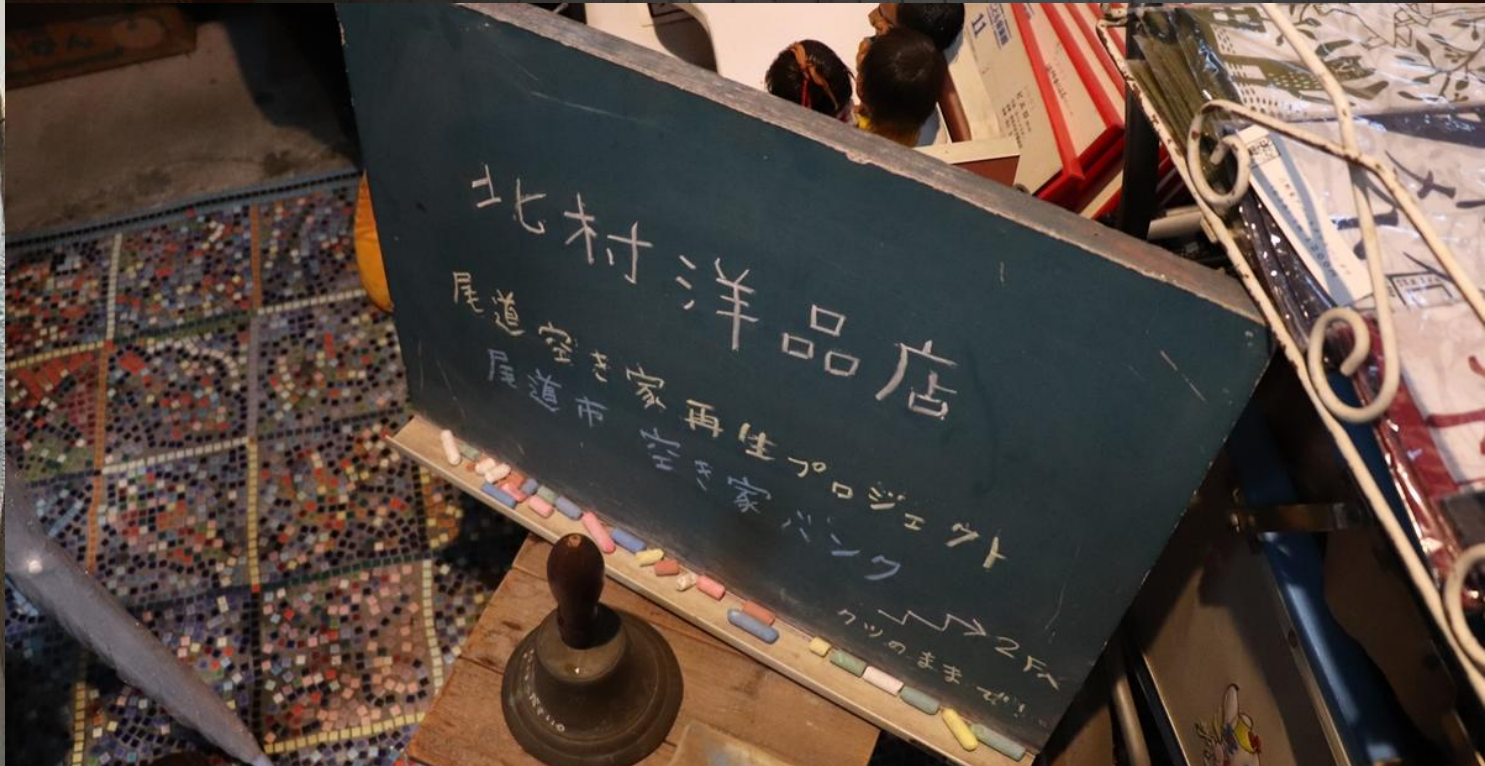 北村洋品店
尾道空き家再生プロジェクト
尾道市 空き家バンク
2Fへ
クツのままで!!
11